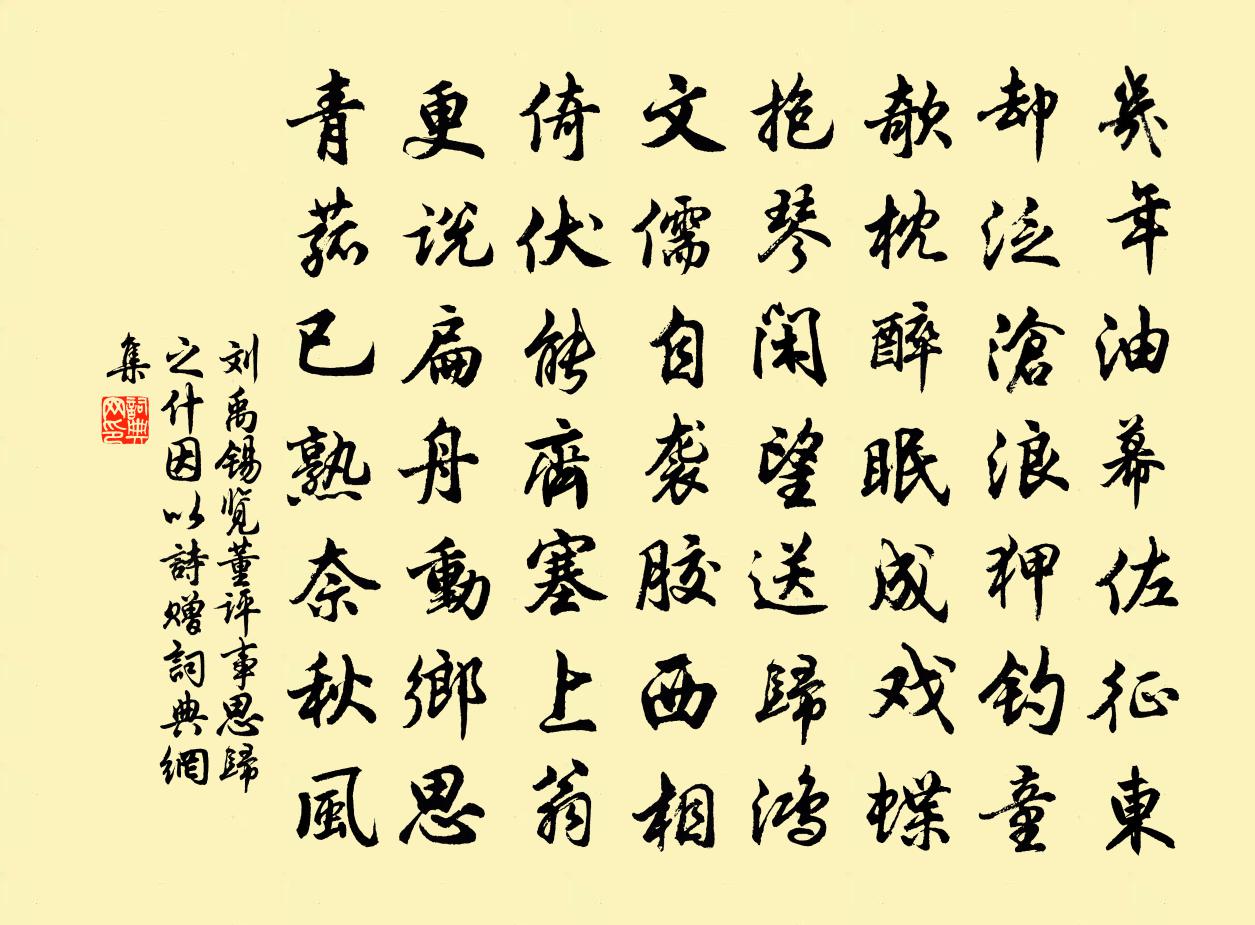 幾年油幕佐征東
却泛滄浪狎釣童
欹枕醉眠成戏蝶
抱琴閑望送歸鴻
文儒自袭胶西相
倚伏能齊塞上翁
更说扁舟動鄉思
青菰已熟奈秋風
刘禹锡览董评事思歸
之什因以詩赠詞典網
集
詞典网印